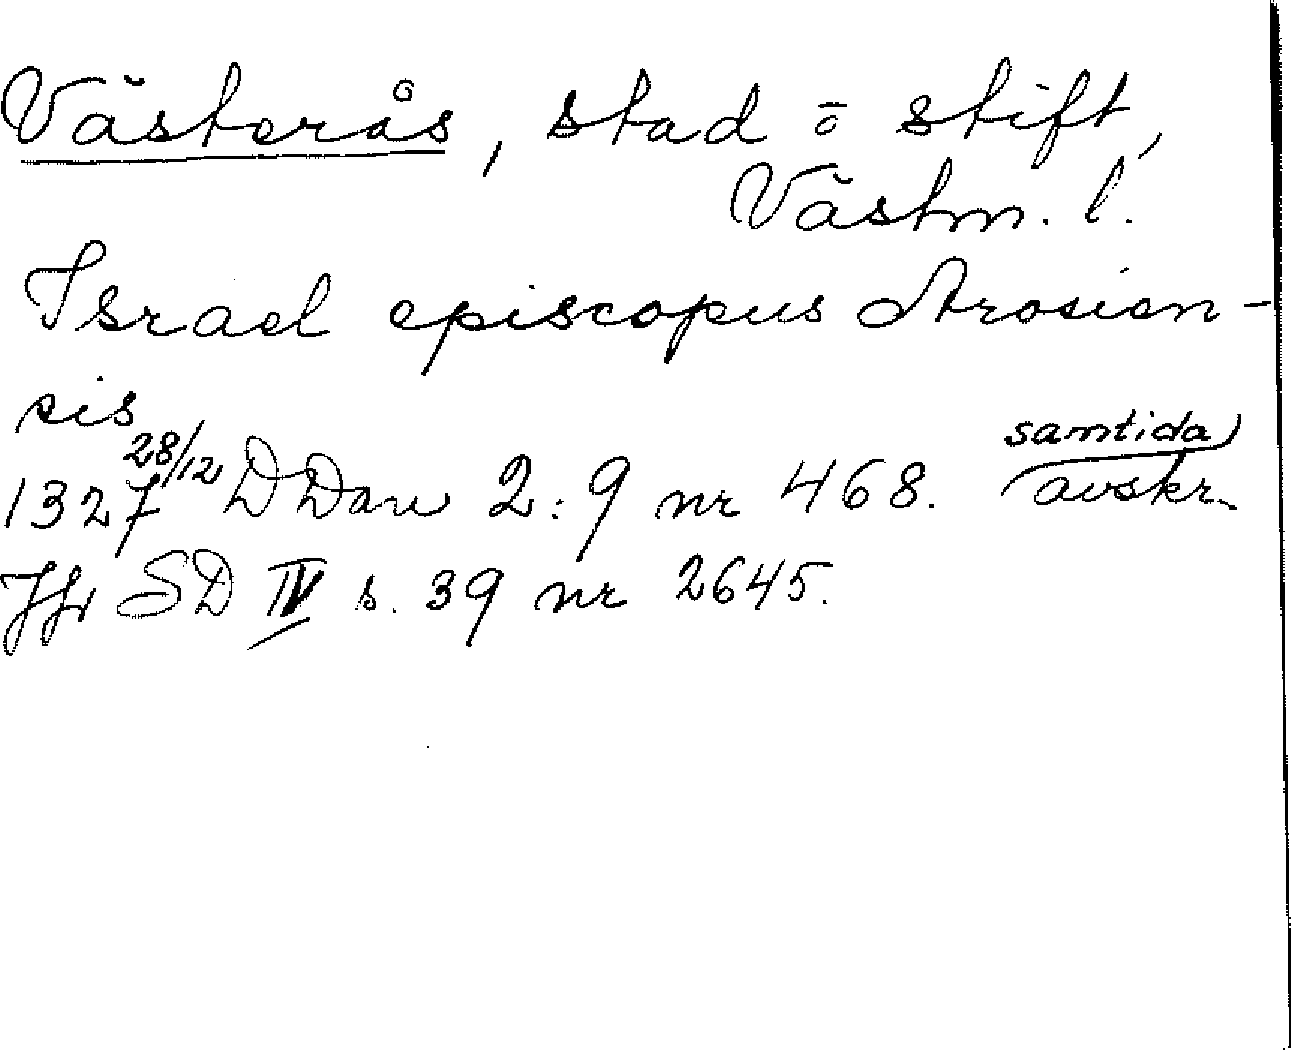 Västerås, stad o stift,
Västm. l.
Israel episcopus Arosien-
sis
1327 28/12 DDan 2:9 nr 468. samtida avskr.
Jfr SD IV s. 39 nr 2645.